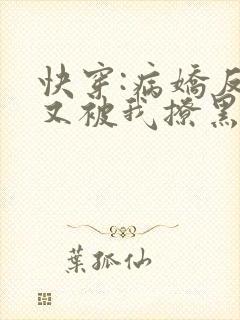 快穿:病娇反
又被我撩黑
葉孤仙